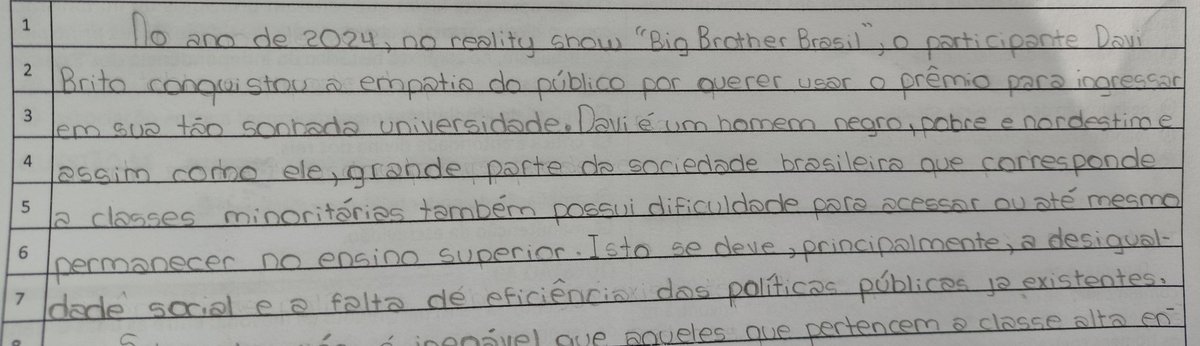 1 No ano de 2024, no reality show "Big Brother Brasil", o participante Davi
2 Brito conquistou a empatia do público por querer usar o prêmio para ingressar
3 em sua tão sonhada universidade. Davi é um homem negro, pobre e nordestino e
4 assim como ele, grande parte da sociedade brasileira que corresponde
5 a classes minoritárias também possui dificuldade para acessar ou até mesmo
6 permanecer no ensino superior. Isto se deve, principalmente, a desigual-
7 dade social e a falta de eficiência das políticas públicas ja existentes.
8 é inegável que aqueles que pertencem a classe alta en-